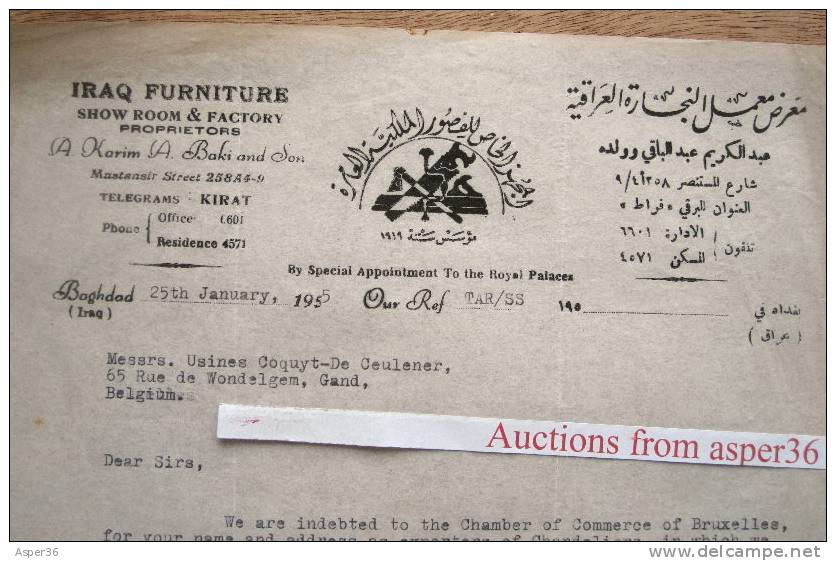 IRAQ FURNITURE
SHOW ROOM & FACTORY
PROPRIETORS
A. Karim A. Baki and Son
Mustansir Street 258A4-9
TELEGRAMS: KIRAT
Phone
Office 6601
Residence 4571
المجهز الخاص للقصور الملكية العامرة
مؤسس سنة ١٩١٩
By Special Appointment To the Royal Palaces
معرض معمل النجارة العراقية
عبد الكريم عبد الباقي وولده
شارع المستنصر ٢٥٨أ٩/٤
العنوان البرقي «قراط»
تلفون
الادارة: ٦٦٠١
المسكن ٤٥٧١
Baghdad 25th January, 1955 Our Ref TAR/SS
(Iraq)
بغداد في ١٩٥
(عراق)
Messrs. Usines Coquyt-De Ceulener,
65 Rue de Wondelgem, Gand,
Belgium.
Auctions from asper36
Dear Sirs,
We are indebted to the Chamber of Commerce of Bruxelles,
for your name and address as exporters of Chandeliers, in which we
Asper36
www.delcampe.net